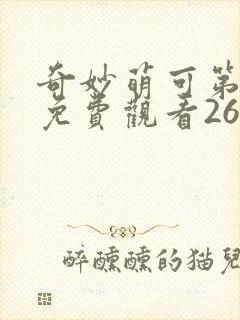 奇妙萌可第
免費觀看26
醉醺醺的猫兒